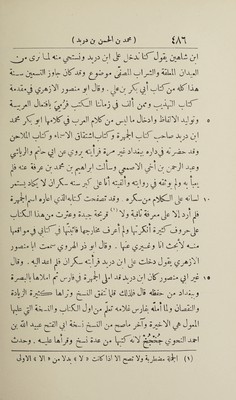 ٤٨٦ (محمد بن الحسن بن دريد)
ابن شاهين يقول كنا ندخل على ابن دريد ونستحي منه لما نرى من
العيدان المعلقة والشراب المصفّى موضوع وقد كان جاوز التسعين سنة
هذا كله من كتاب أبي بكر بن علي. وقال ابو منصور الازهري في مقدمة
كتاب التهذيب وممن ألف في زماننا الكتب فرُمي بافتعال العربية
٥ وتوليد الالفاظ وادخال ما ليس من كلام العرب في كلامها ابو بكر محمد
ابن دريد صاحب كتاب الجمهرة وكتاب اشتقاق الاسماء وكتاب الملاحن
وقد حضرته في داره ببغداد غير مرة فرأيته يروي عن ابي حاتم والرياشي
وعبد الرحمن بن أخي الاصمعي وسألت ابراهيم بن محمد بن عرفة عنه فلم
يعبأ به ولم يوثقه في روايته وألفيته أنا على كبر سنه سكران لا يكاد يستمر
١٠ لسانه على الكلام من سكره. وقد تصفحت كتابه الذي اعاره اسم الجمهرة
فلم أره دالا على معرفة ثاقبة ولا (١) قريحة جيدة وعثرت من هذا الكتاب
على حروف كثيرة أنكرتها ولم أعرف مخارجها فأثبتها في كتابي في مواقعها
منه لأبحث انا وغيري عنها. وقال ابو ذر الهروي سمعت ابا منصور
الازهري يقول دخلت على ابن دريد فرأيته سكران فلم اعد اليه. وقال
١٥ غير ابي منصور كان ابن دريد قد املى الجمهرة في فارس ثم املاها بالبصرة
وببغداد من حفظه قال فلذلك قلما تتفق النسخ وتراها كثيرة الزيادة
والنقصان ولما أملّه بفارس غلامه تعلم من اول الكتاب والنسخة التي عليها
المعول هي الاخيرة وآخر ماصح من النسخ نسخة ابي الفتح عبيد الله بن
احمد النحوي جُخْجُخ لانه كتبها من عدة نسخ وقرأها عليه. وحدث
(١) الجملة مضطربة ولا تصح الا اذا كانت «لا» بدلا من «الا» الاولى